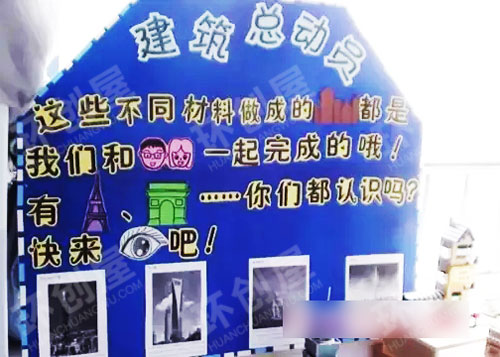 建筑总动员
这些不同材料做成的 都是
我们和 一起完成的哦！
有 、 ……你们都认识吗？
快来 吧！
环创屋
HUANCHUANGWU.COM